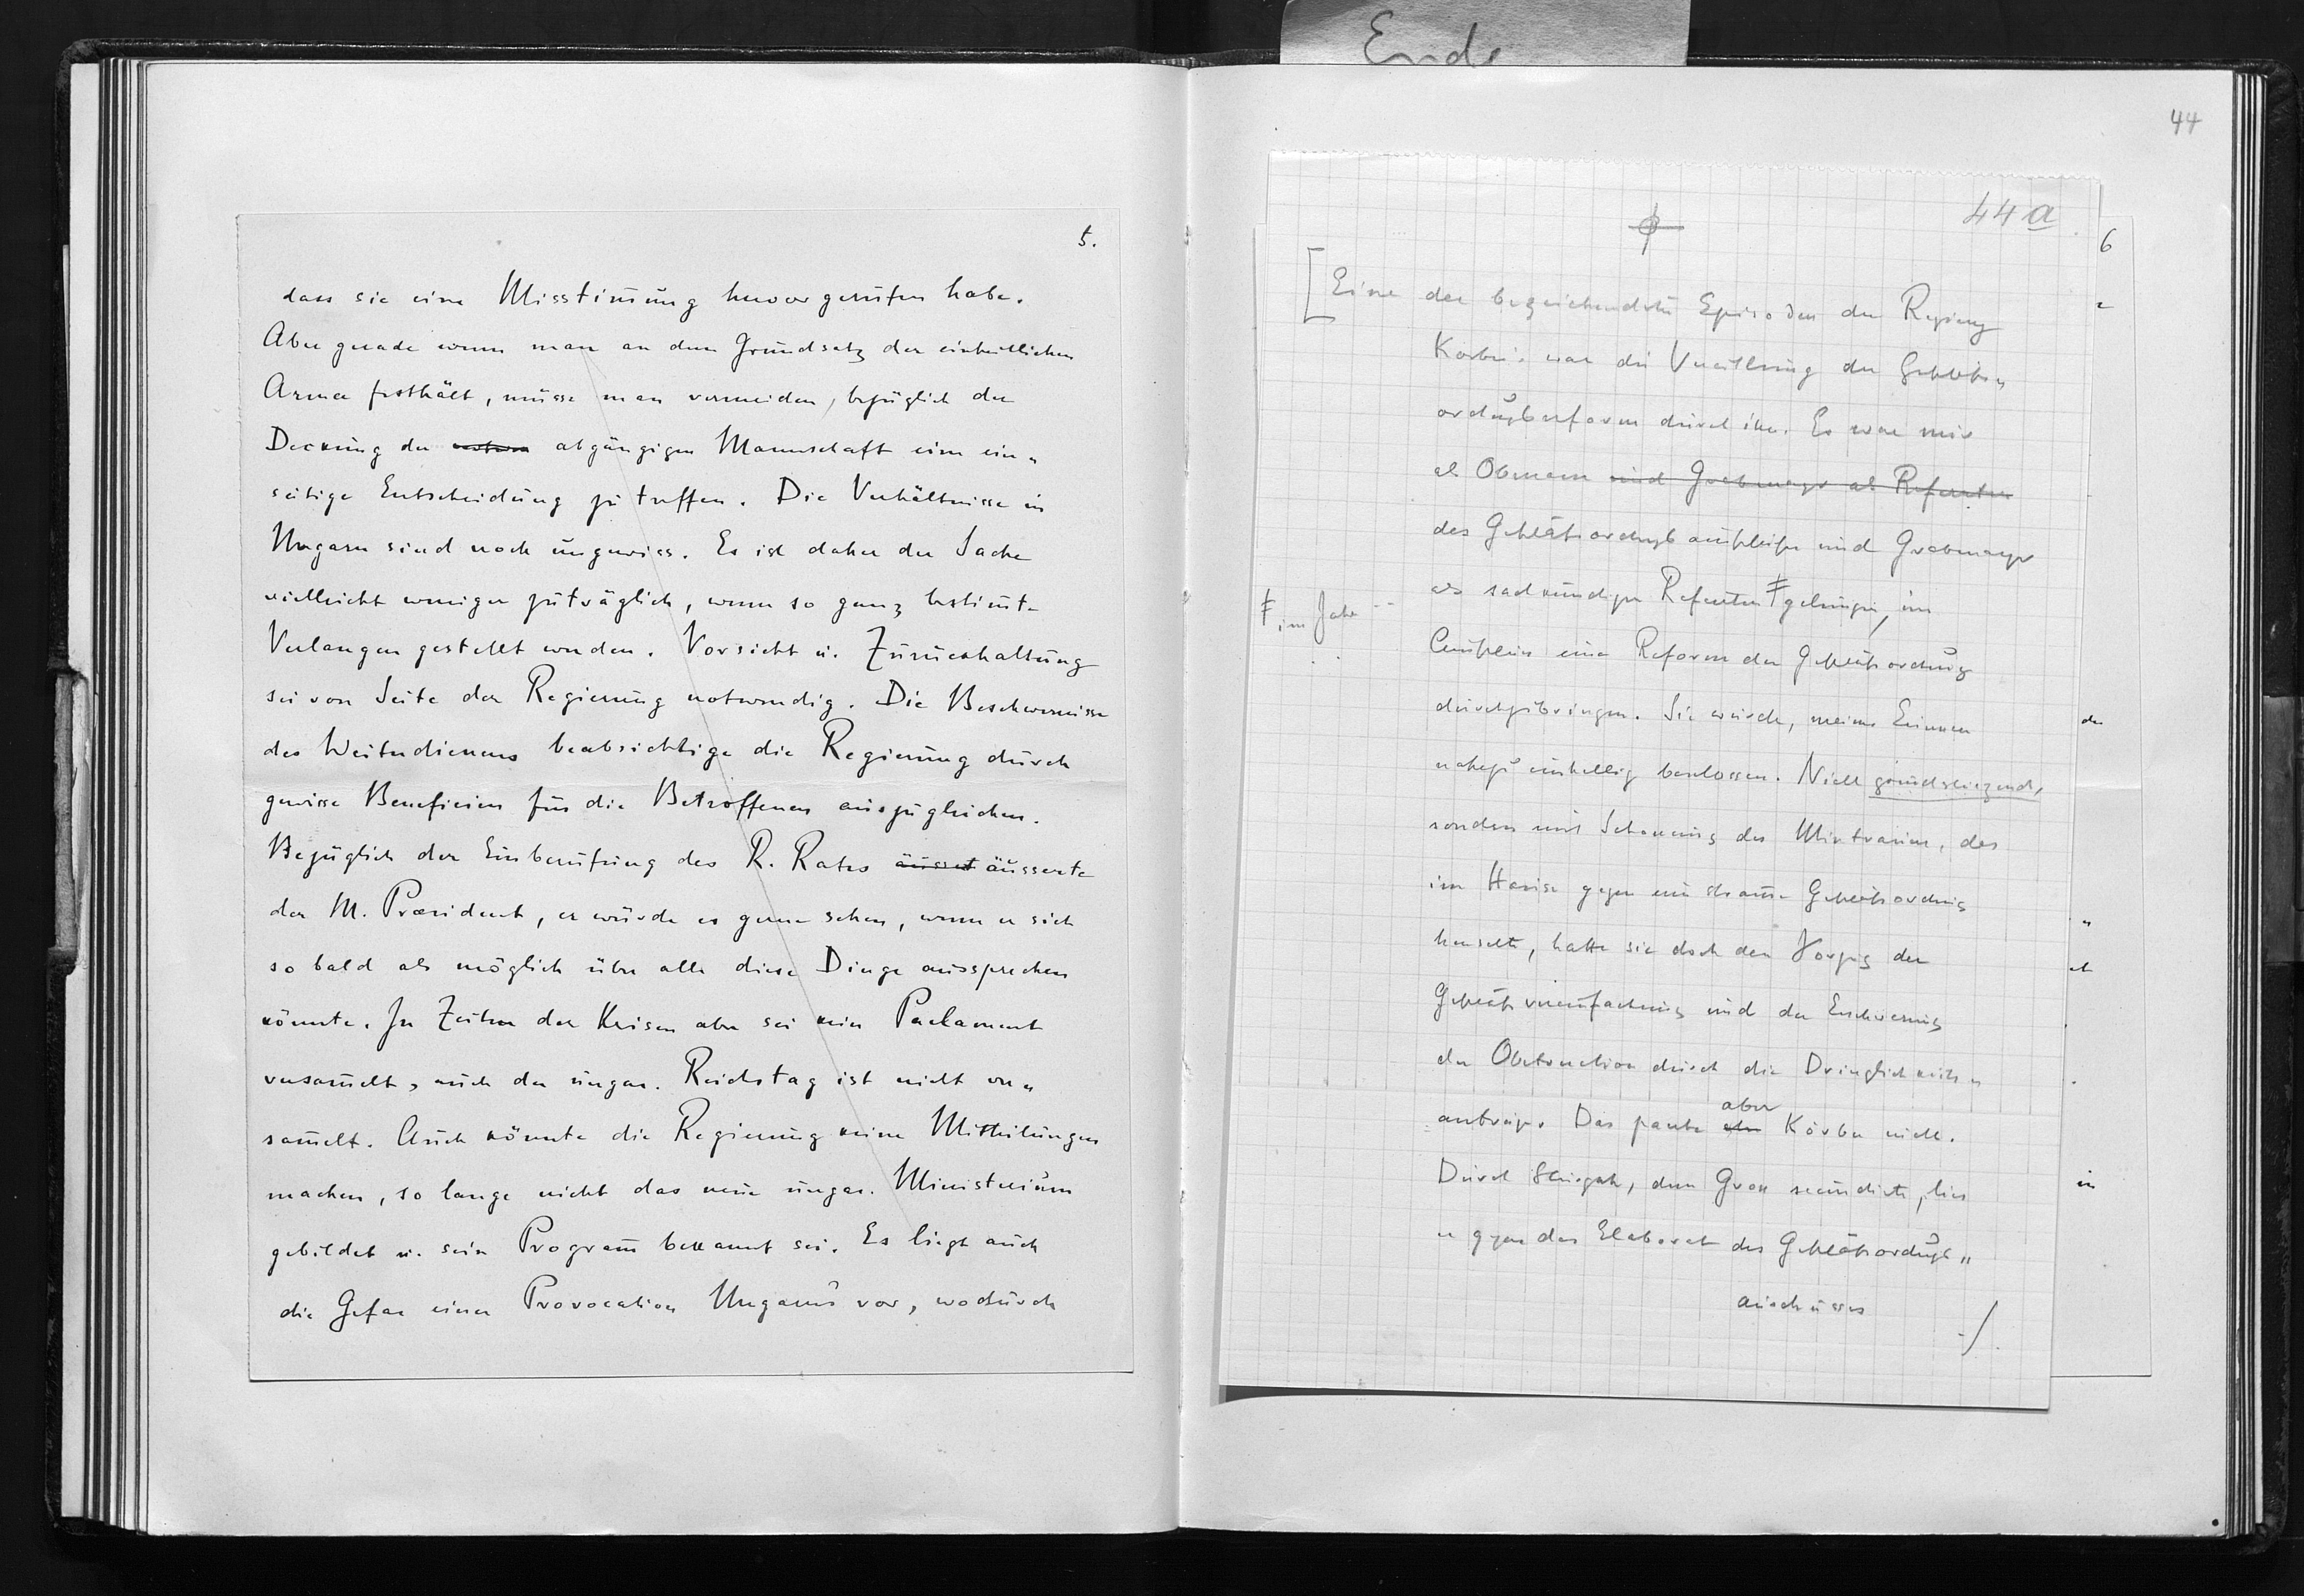 5.
dass sie eine Misstim̄ung hervorgerufen habe.
Aber gerade wenn man an dem Grundsatz der einheitlichen
Armee festhält, müsse man vermeiden, bezüglich der
Deckung der abgängigen Mannschaft eine ein„
seitige Entscheidung zu treffen. Die Verhältnisse in
Ungarn sind noch ungewiss. Es ist daher der Sache
vielleicht weniger zuträglich, wenn so ganz bestim̄te
Verlangen gestellt werden. Vorsicht u. Zurückhaltung
sei von Seite der Regierung notwendig. Die Beschwernisse
des Weiterdienens beabsichtige die Regierung durch
gewisse Beneficien für die Betroffenen auszugleichen.
Bezüglich der Einberufung des R. Rates äussert äusserte
der M. Præsident, er würde es gerne sehen, wenn er sich
so bald als möglich über alle diese Dinge aussprechen
könnte. In Zeiten der Krisen aber sei kein Parlament
versam̄elt, auch der ungar. Reichstag ist nicht ver„
sam̄elt. Auch könnte die Regierung keine Mittheilungen
machen, so lange nicht das neue ungar. Ministerium
gebildet u. sein Program̄ bekannt sei. Es liegt auch
die Gefar einer Provocation Ungarns vor, wodurch
Ende
44
44a
6
[Eine der bezeichendsten Episoden der Regierung
Körber war die Vereitlung der Geschäfts„
ordnungsreform durch ihn. Es war mir
als Obmann und Grabmayr als Referenten
des Geschäftsordnungsausschusses und Grabmayr
als sachkundigen Referenten Ŧ gelungen, im
Ŧ im Jahr
Ausschuss eine Reform der Geschäftsordnung
durchzubringen. Sie wurde, meines Erinnern
nahezu einhellig beschlossen. Nicht grundstürzend,
sondern mit Schonung des Misstrauens, das
im Hause gegen eine stram̄e Geschäftsordnung
herrschte, hatte sie doch den Vorzug der
Geschäftsvereinfachung und der Erschwerung
der Obstruction durch die Dringlichkeits„
anträge. Das passte aber Körber nicht.
Durch Stürgkh, dem Gross secundirte, lies
er gegen das Elaborat des Geschäftsordnungs„
ausschusses
./.